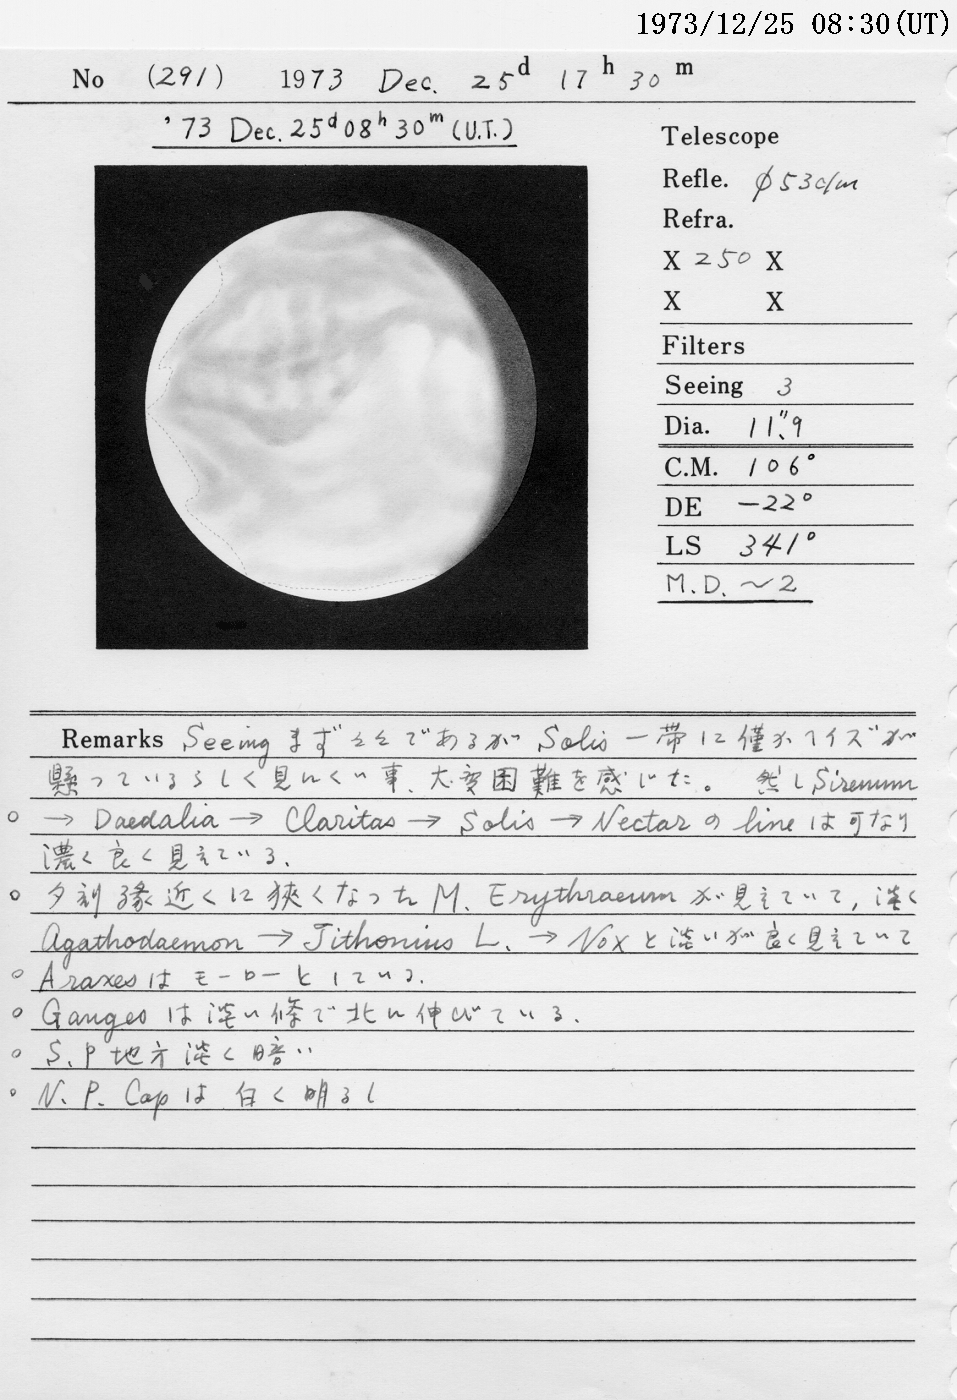 1973/12/25 08:30(UT)
No (291) 1973 Dec. 25d 17h 30m
'73 Dec. 25d 08h 30m (U.T.)
Telescope
Refle. φ53c/m
Refra.
X 250 X
X X
Filters
Seeing 3
Dia. 11."9
C.M. 106°
DE −22°
LS 341°
M.D. ~2
Remarks Seeing まずまずであるが Solis 一帯に僅かヘイズが
懸っているらしく見にくい事、大変困難を感じた。 然し Sirenum
→ Daedalia → Claritas → Solis → Nectar の line は可なり
濃く良く見えている.
夕刻縁近くに狭くなった M. Erythraeum が見えていて, 淡く
Agathodaemon → Tithonius L. → Nox と淡いが良く見えていて
Araxes は モーローとしている.
Ganges は淡い條で北に伸びている.
S.P地方淡く暗い
N.P. Cap は 白く明るし